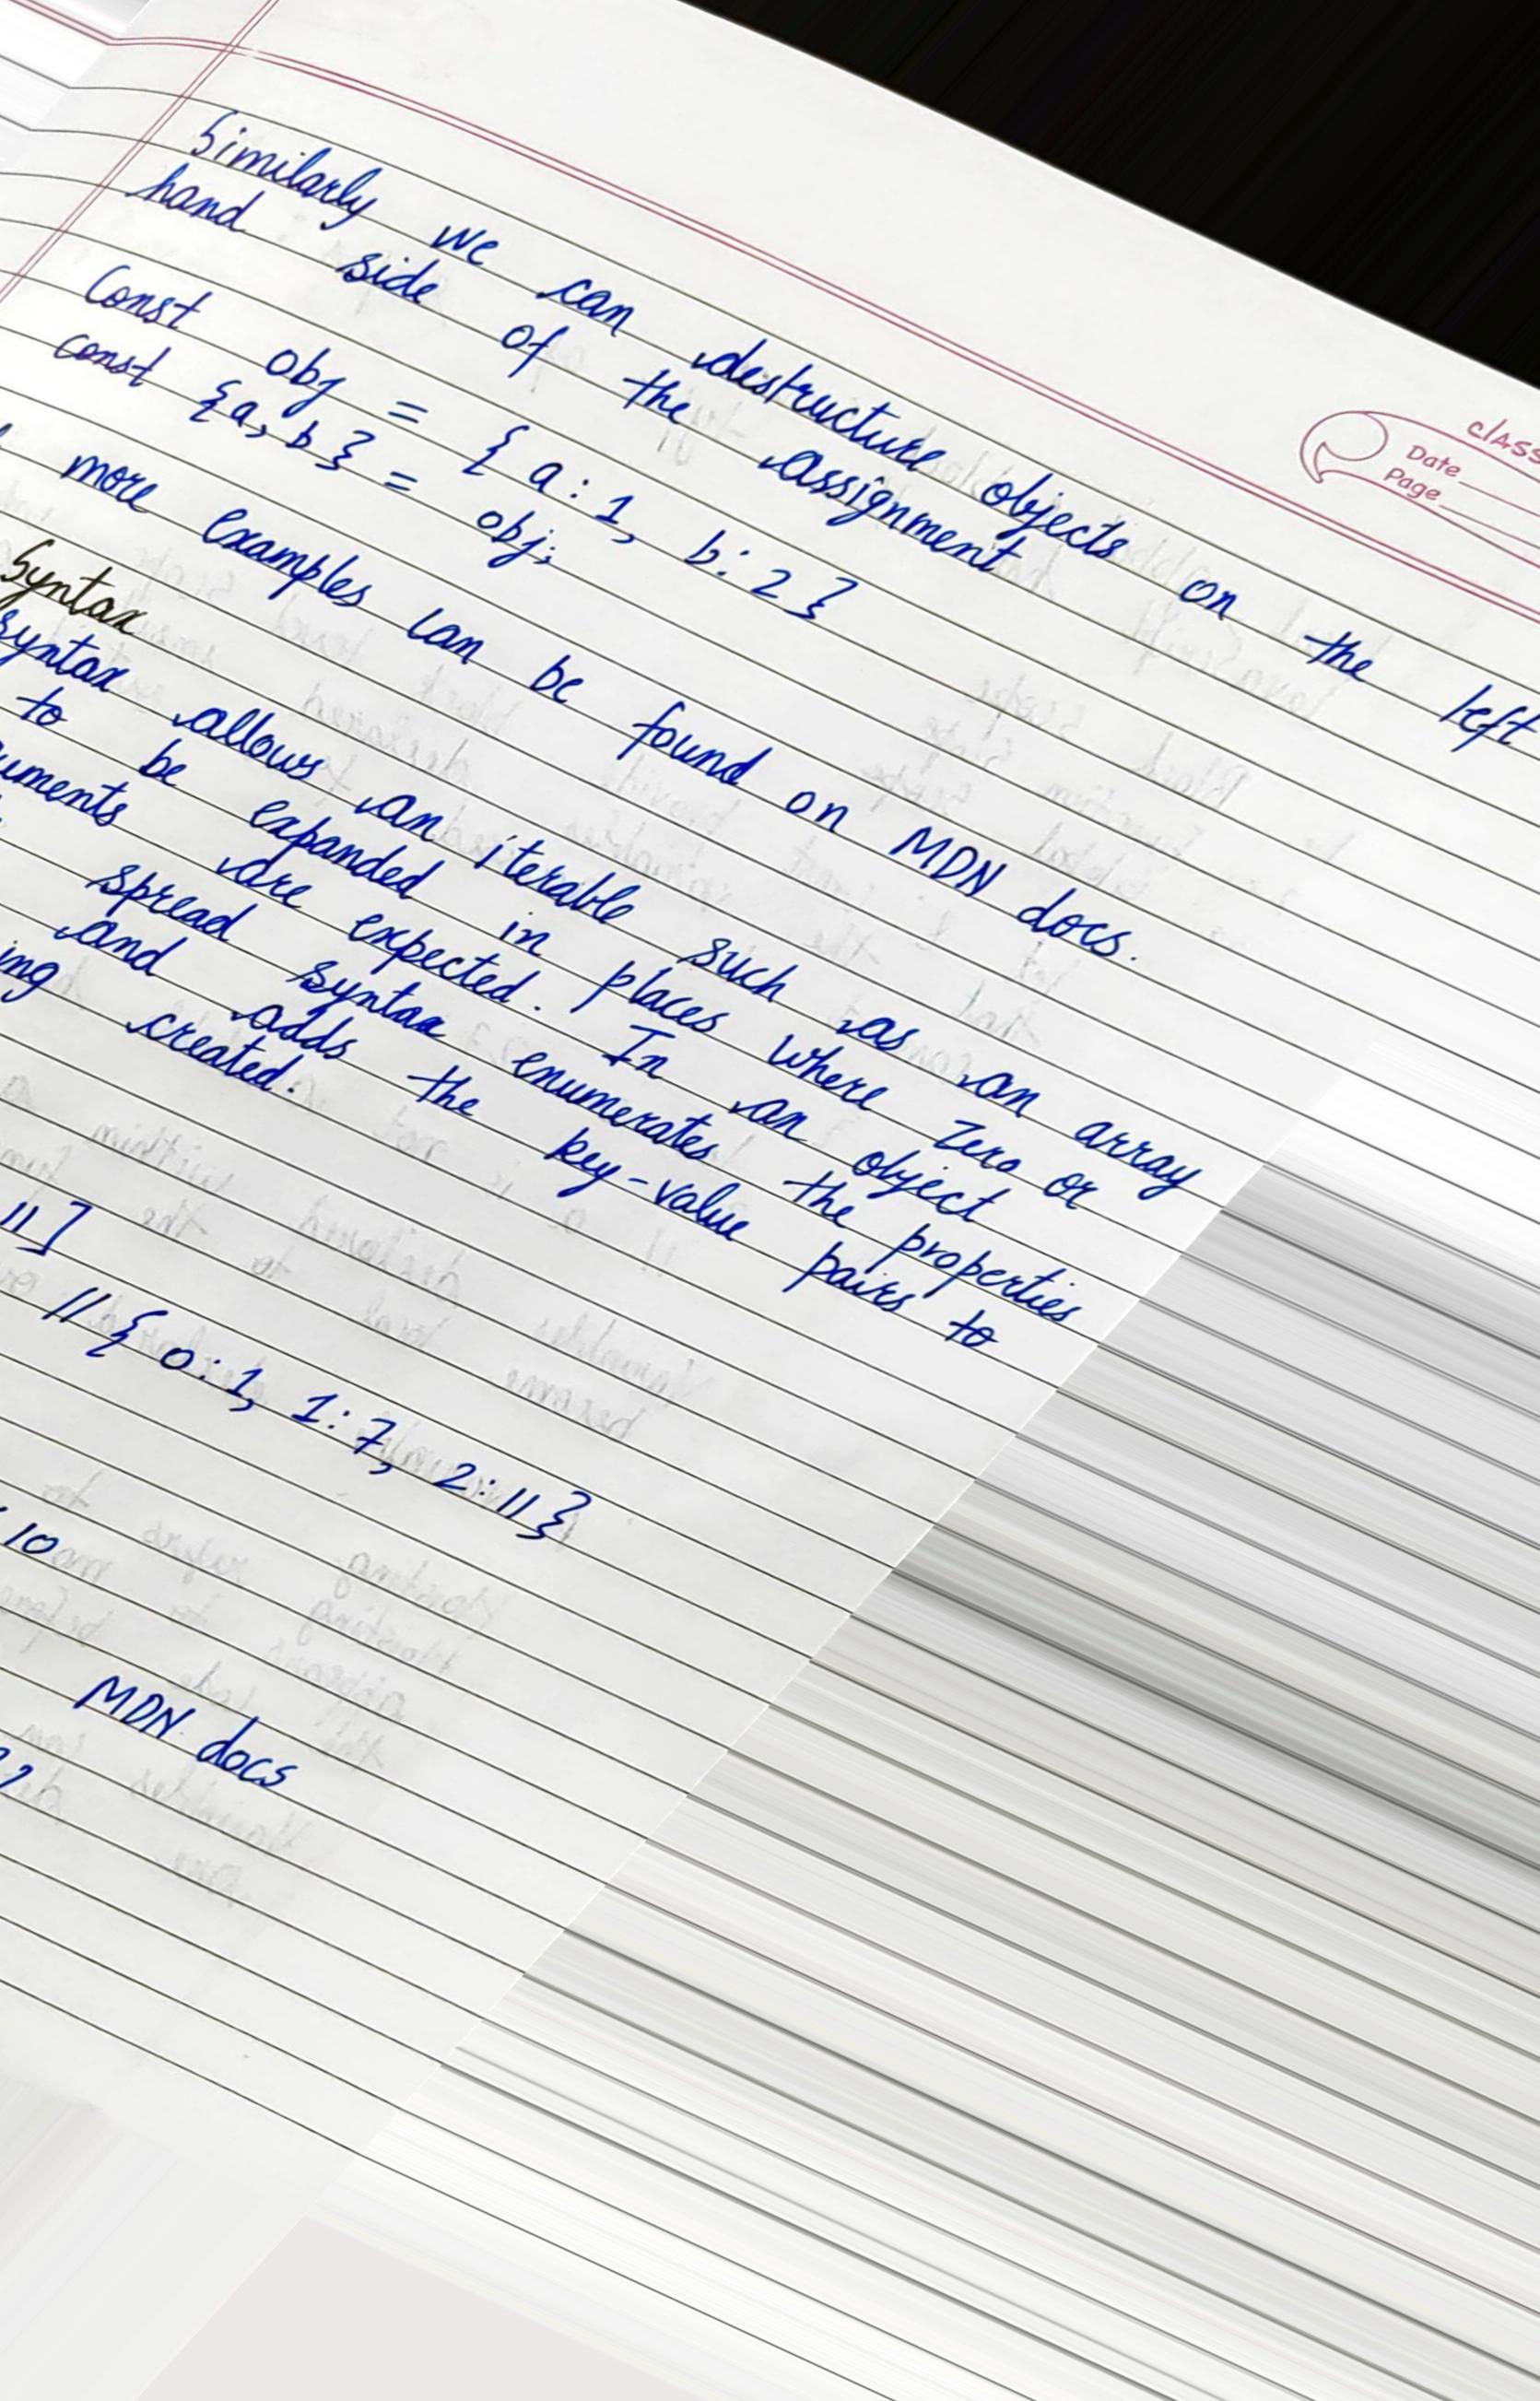 CLASS
Date
Page
Similarly we can destructure objects on the left
hand side of the assignment
Const obj = { a : 1, b : 2 }
const {a, b } = obj;
more examples can be found on MDN docs.
Syntax
syntax allows an iterable such as an array
to be expanded in places where zero or
uments are expected. In an object
spread syntax enumerates the properties
and adds the key-value pairs to
ing created.
11 ]
// { 0 : 1, 1 : 7, 2 : 11 }
10
MDN docs